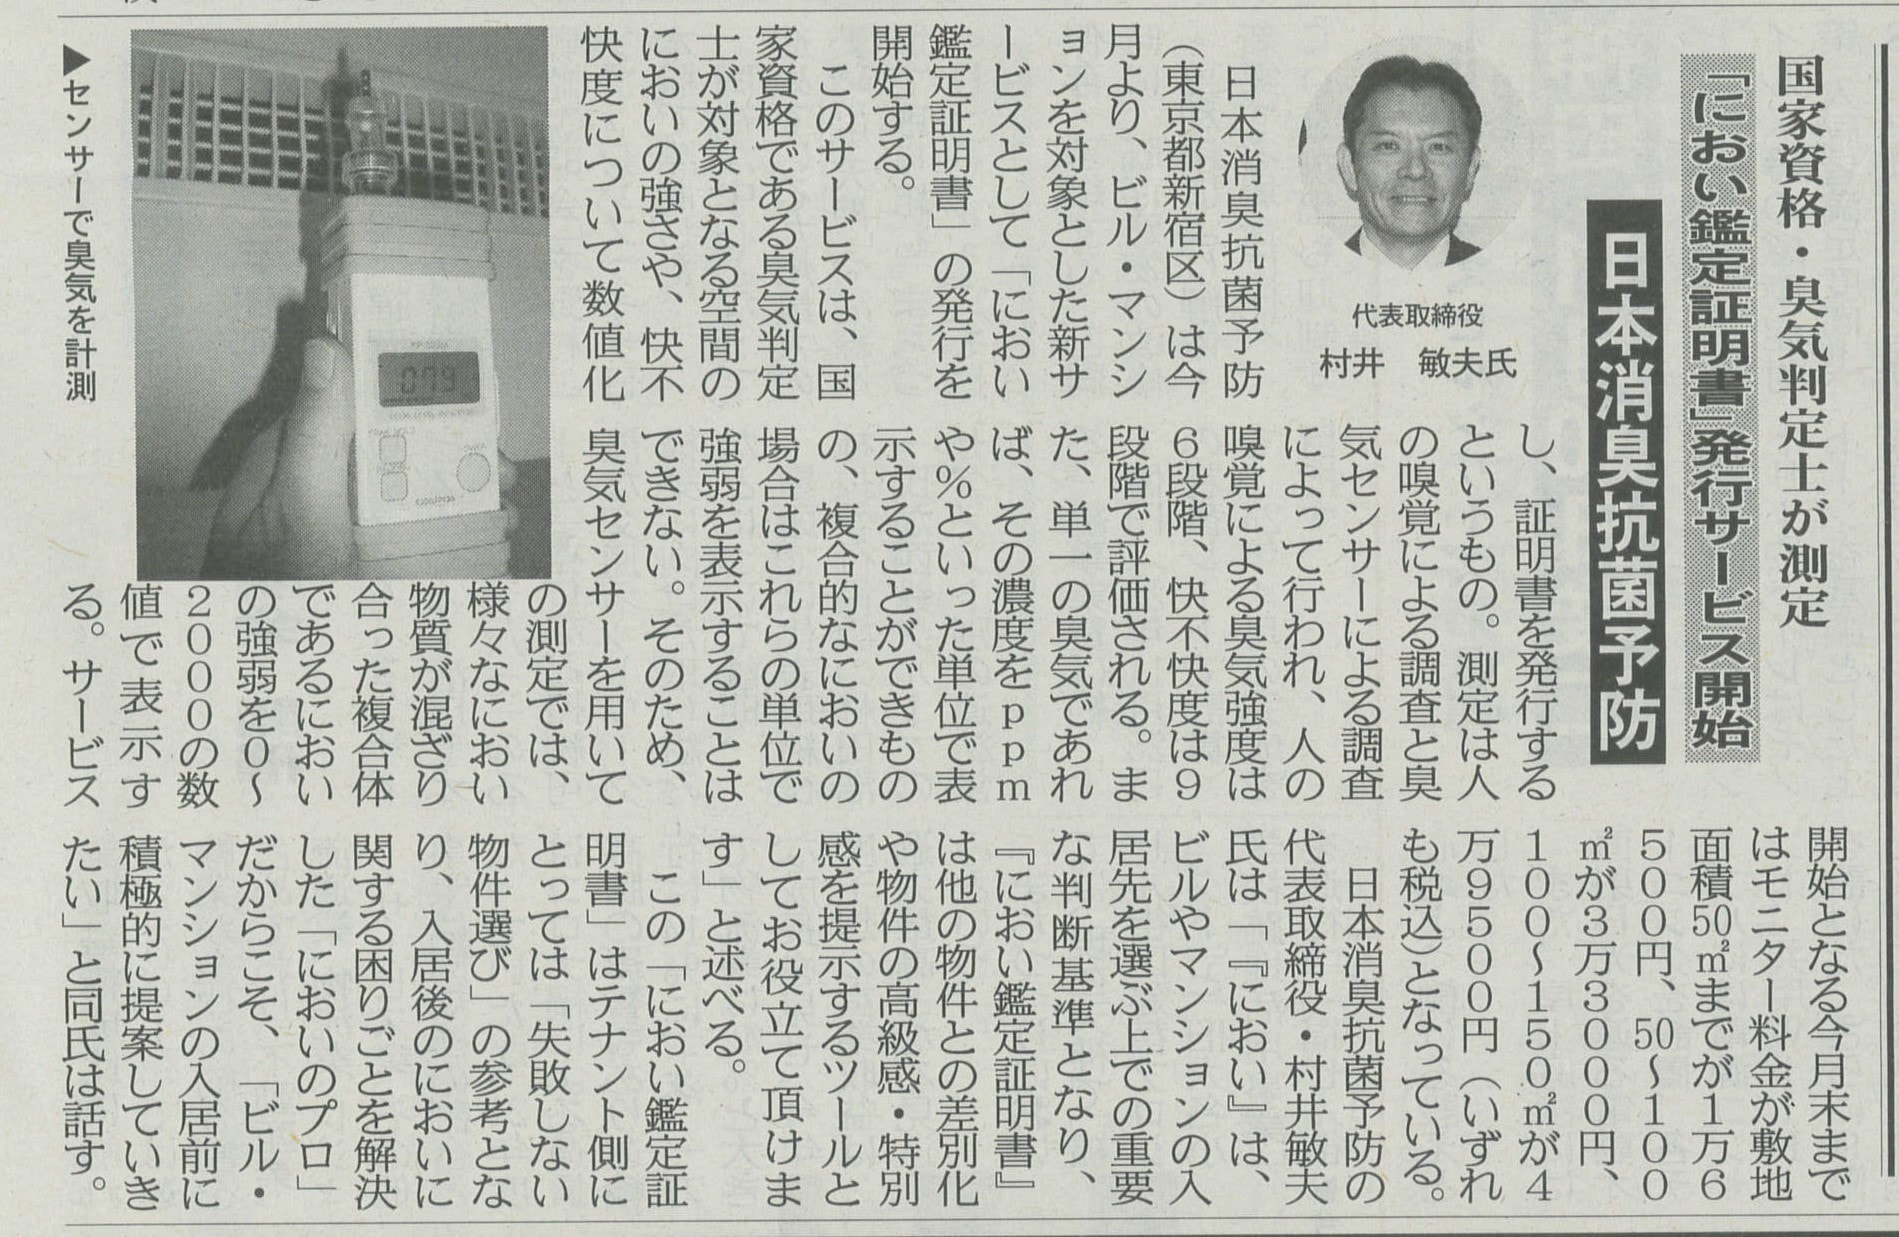 国家資格・臭気判定士が測定
「におい鑑定証明書」発行サービス開始
日本消臭抗菌予防
代表取締役
村井　敏夫氏
日本消臭抗菌予防
（東京都新宿区）は今
月より、ビル・マンシ
ョンを対象とした新サ
ービスとして「におい
鑑定証明書」の発行を
開始する。
このサービスは、国
家資格である臭気判定
士が対象となる空間の
においの強さや、快不
快度について数値化
し、証明書を発行する
というもの。測定は人
の嗅覚による調査と臭
気センサーによる調査
によって行われ、人の
嗅覚による臭気強度は
６段階、快不快度は９
段階で評価される。ま
た、単一の臭気であれ
ば、その濃度をｐｐｍ
や％といった単位で表
示することができもの
の、複合的なにおいの
場合はこれらの単位で
強弱を表示することは
できない。そのため、
臭気センサーを用いて
の測定では、
様々なにおい
物質が混ざり
合った複合体
であるにおい
の強弱を０〜
２０００の数
値で表示す
る。サービス
開始となる今月末まで
はモニター料金が敷地
面積50㎡までが１万６
５００円、50〜１００
㎡が３万３０００円、
１００〜１５０㎡が４
万９５００円（いずれ
も税込）となっている。
日本消臭抗菌予防の
代表取締役・村井敏夫
氏は「『におい』は、
ビルやマンションの入
居先を選ぶ上での重要
な判断基準となり、
『におい鑑定証明書』
は他の物件との差別化
や物件の高級感・特別
感を提示するツールと
してお役立て頂けま
す」と述べる。
この「におい鑑定証
明書」はテナント側に
とっては「失敗しない
物件選び」の参考とな
り、入居後のにおいに
関する困りごとを解決
した「においのプロ」
だからこそ、「ビル・
マンションの入居前に
積極的に提案していき
たい」と同氏は話す。
▶センサーで臭気を計測
079